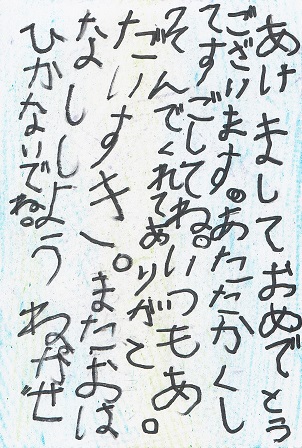 あけましておめでとう
ございます。あたたかくし
てすごしてね。いつもあ
そんでくれてありがと。
だいすき〜。またおは
なししようねかぜ
ひかないでね。